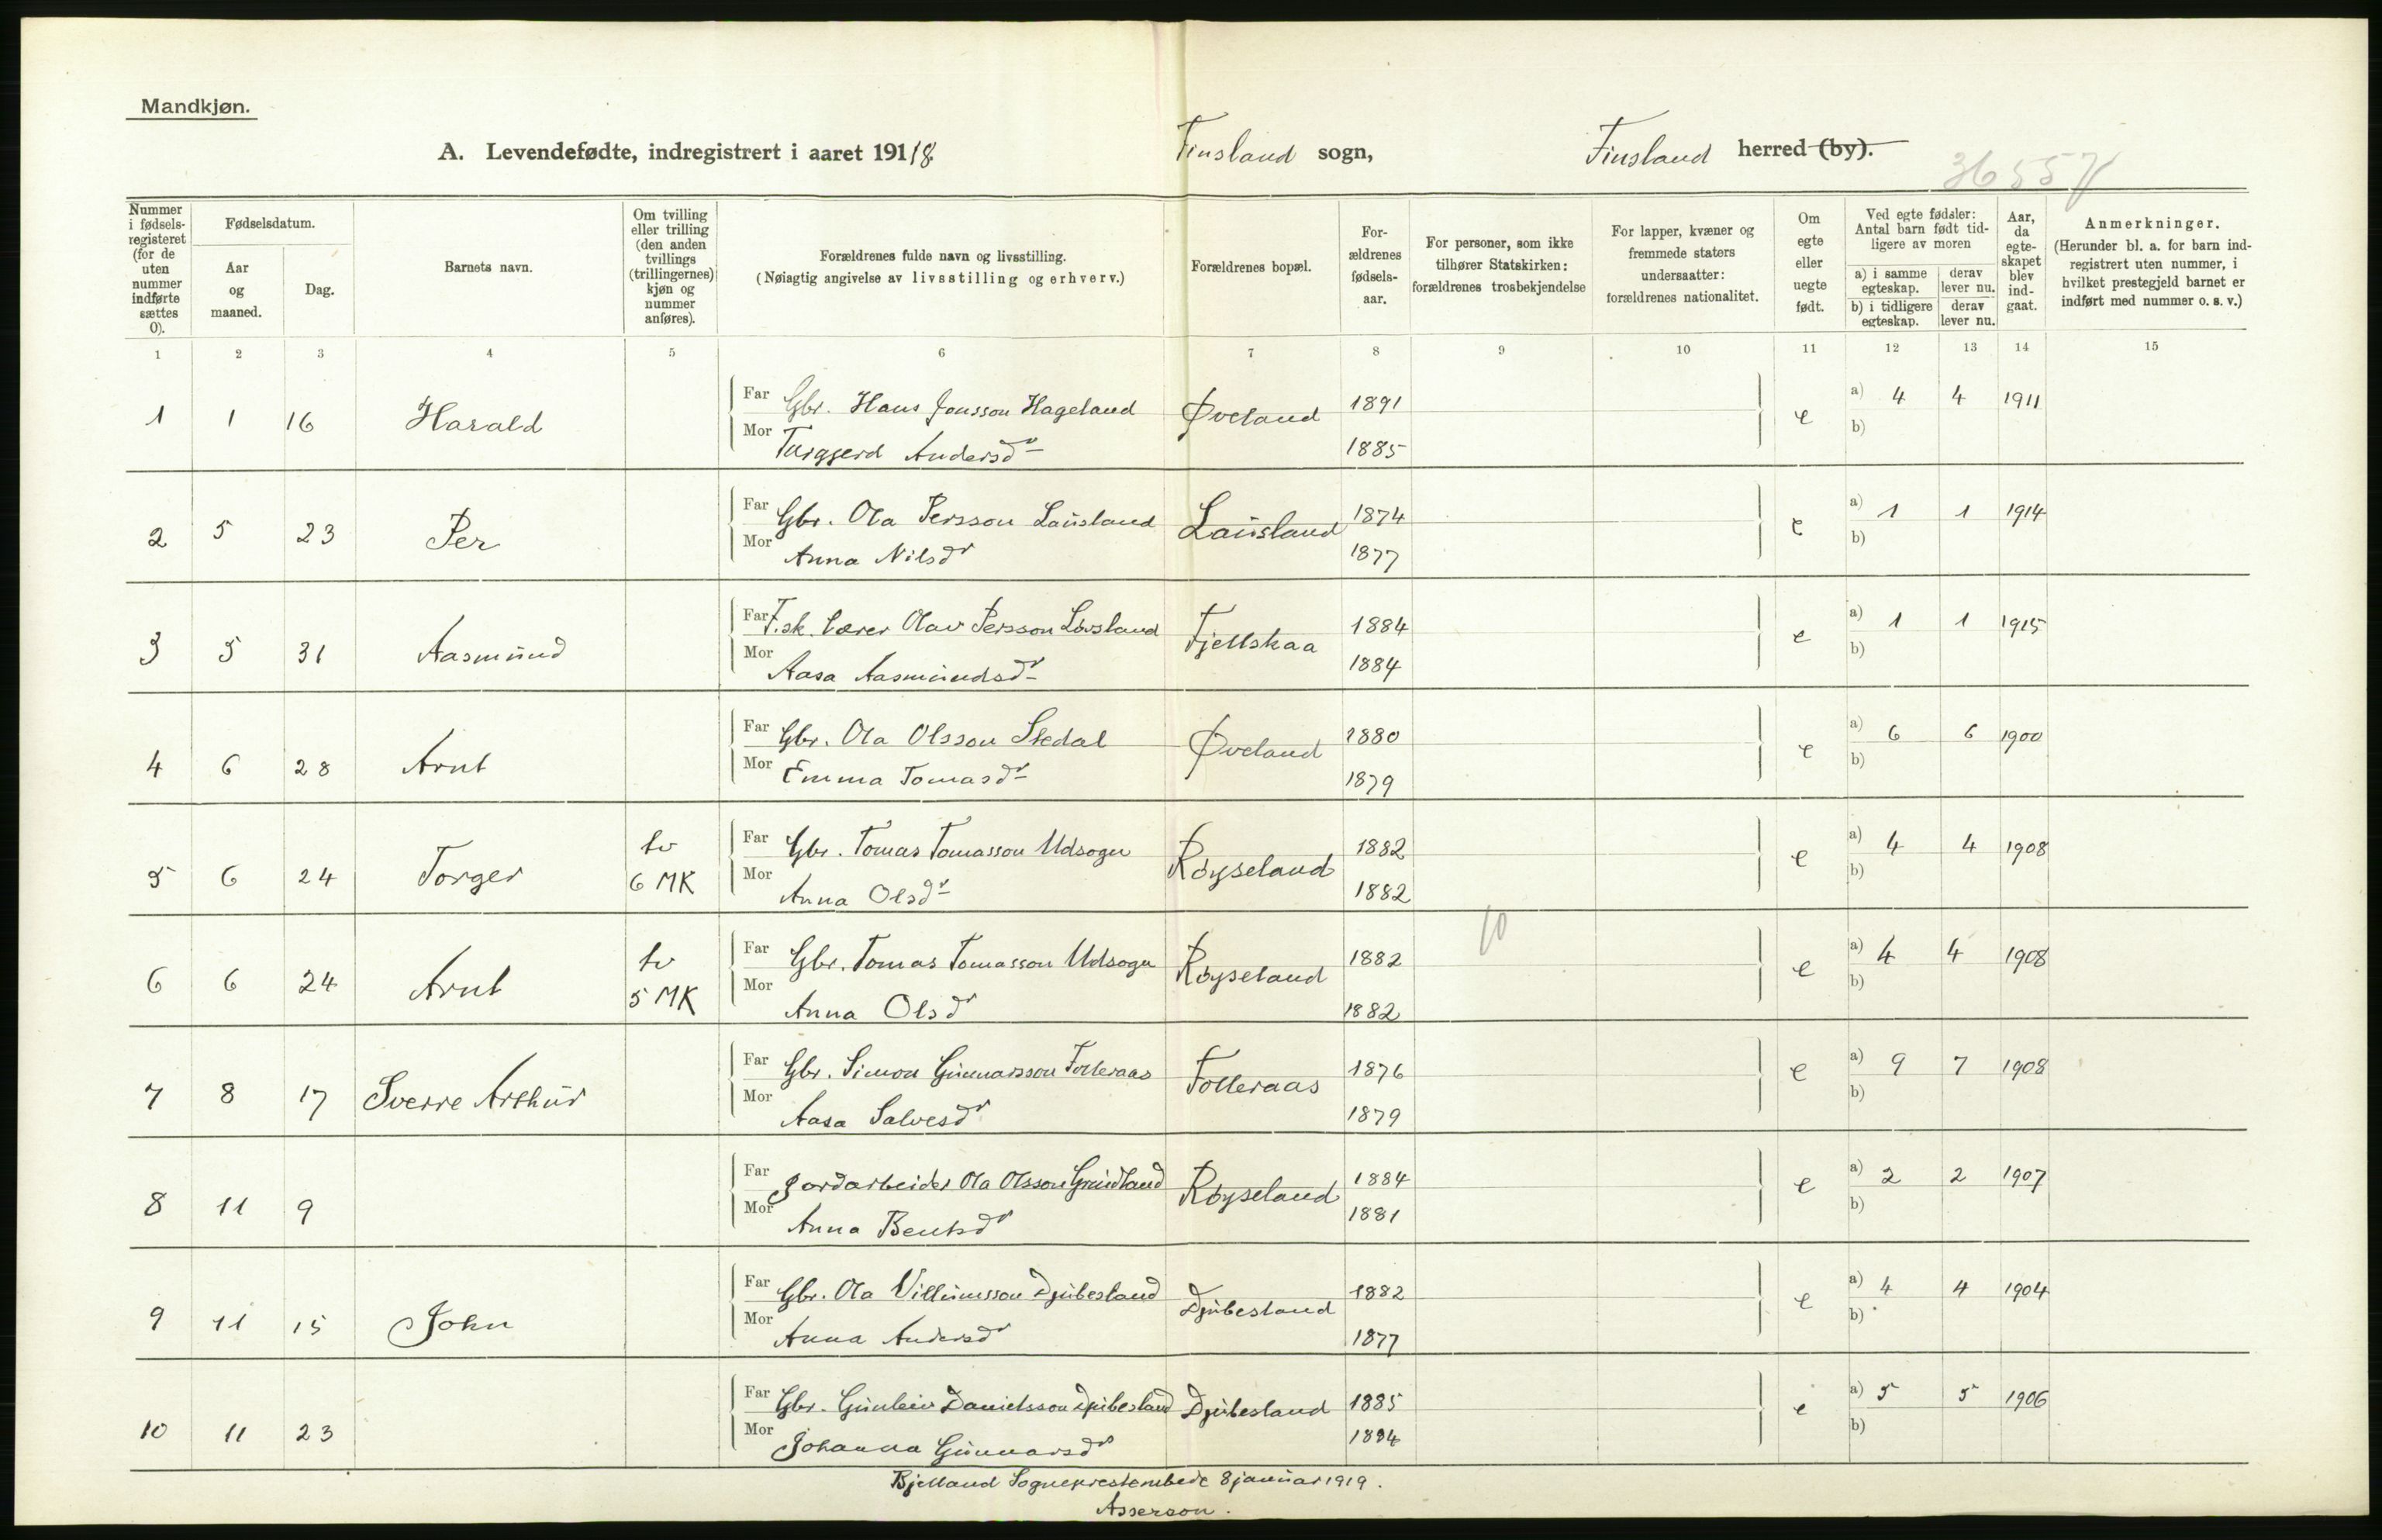 Mandkjøn.
A. Levendefødte, indregistrert i aaret 1918. Finsland sogn, Finsland herred (by).
36557
Nummer i fødsels-registeret (for de uten nummer indførte sættes 0).
Fødselsdatum.
Aar og maaned.
Dag.
Barnets navn.
Om tvilling eller trilling (den anden tvillings (trillingernes) kjøn og nummer anføres).
Forældrenes fulde navn og livsstilling.
(Nøiagtig angivelse av livsstilling og erhverv.)
Forældrenes bopæl.
For-ældrenes fødsels-aar.
For personer, som ikke tilhører Statskirken: forældrenes trosbekjendelse
For lapper, kvæner og fremmede staters undersaatter: forældrenes nationalitet.
Om egte eller uegte født.
Ved egte fødsler: Antal barn født tid-ligere av moren
a) i samme egteskap. derav lever nu.
b) i tidligere egteskap. derav lever nu.
Aar, da egte-skapet blev ind-gaat.
Anmerkninger.
(Herunder bl. a. for barn ind-registrert uten nummer, i hvilket prestegjeld barnet er indført med nummer o. s. v.)
1 2 3 4 5 6 7 8 9 10 11 12 13 14 15
1 1 16 Harald Far Gbr. Hans Jonsson Hageland Øveland 1891 e a) 4 4 1911
Mor Torgjerd Andersdr 1885 b)
2 5 23 Per Far Gbr. Ola Persson Lausland Lausland 1874 e a) 1 1 1914
Mor Anna Nilsdr 1877 b)
3 5 31 Aasmund Far F.sk. lærer Olav Persson Løvsland Fjellskaa 1884 e a) 1 1 1915
Mor Aasa Aasmundsdr 1884 b)
4 6 28 Arnt Far Gbr. Ola Olsson Stedal Øveland 1880 e a) 6 6 1900
Mor Emma Tomasdr 1879 b)
5 6 24 Torger tv 6 MK Far Gbr. Tomas Tomasson Udsogn Røyseland 1882 e a) 4 4 1908
Mor Anna Olsdr 1882 b)
10
6 6 24 Arnt tv 5 MK Far Gbr. Tomas Tomasson Udsogn Røyseland 1882 e a) 4 4 1908
Mor Anna Olsdr 1882 b)
7 8 17 Sverre Arthur Far Gbr. Simon Gunnarsson Folleraas Folleraas 1876 e a) 9 7 1908
Mor Aasa Salvesdr 1879 b)
8 11 9 Far Jordarbeider Ola Olsson Grundland Røyseland 1884 e a) 2 2 1907
Mor Anna Bentsdr 1881 b)
9 11 15 John Far Gbr. Ola Villumsson Djubesland Djubesland 1882 e a) 4 4 1904
Mor Anna Andersdr 1877 b)
10 11 23 Far Gbr. Gunleiv Danielsson Djubesland Djubesland 1885 e a) 5 5 1906
Mor Johanna Gunnarsdr 1884 b)
Bjelland Sogneprestembede 8 januar 1919.
Asserson.